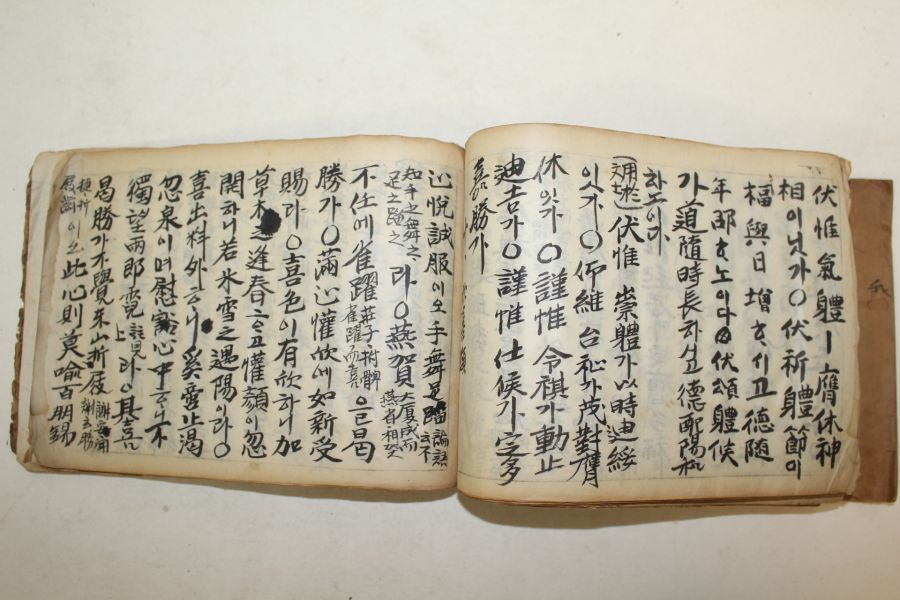 伏惟氣體ㅣ膺休神
相이닛가〇伏祈體節이
福與日增ᄒᆞ시고德隨
年卲ᄒᆞ노이다〇伏頌體候
가道隨時長하시고德配陽和
하노이다
伏惟 崇體가以時迪綏
잇가〇仰維台祉가茂對膺
休잇가〇謹惟 令祺가動止
迪吉가〇謹惟 仕候가定多
嘉勝가
心悅誠服이오手舞足蹈論語云不
知手之舞之足之蹈之라〇燕賀大厦成而燕雀相賀
不任에雀躍莊子 雀躍而喜으로曷
勝가〇滿心懽欣에如新受
賜라〇喜色이有欣하니加
草木之逢春ᄒᆞ고懽顔이忽
開하니若氷雪之遇陽이라〇
喜出料外ᄒᆞ니奚啻止渴
忽泉이며慰豁心中ᄒᆞ니不
獨望雨郎霓 라〇其喜
曷勝가不覺東山折屐謝安聞謝玄勝
屐齒이오此心則莫喩百朋錫